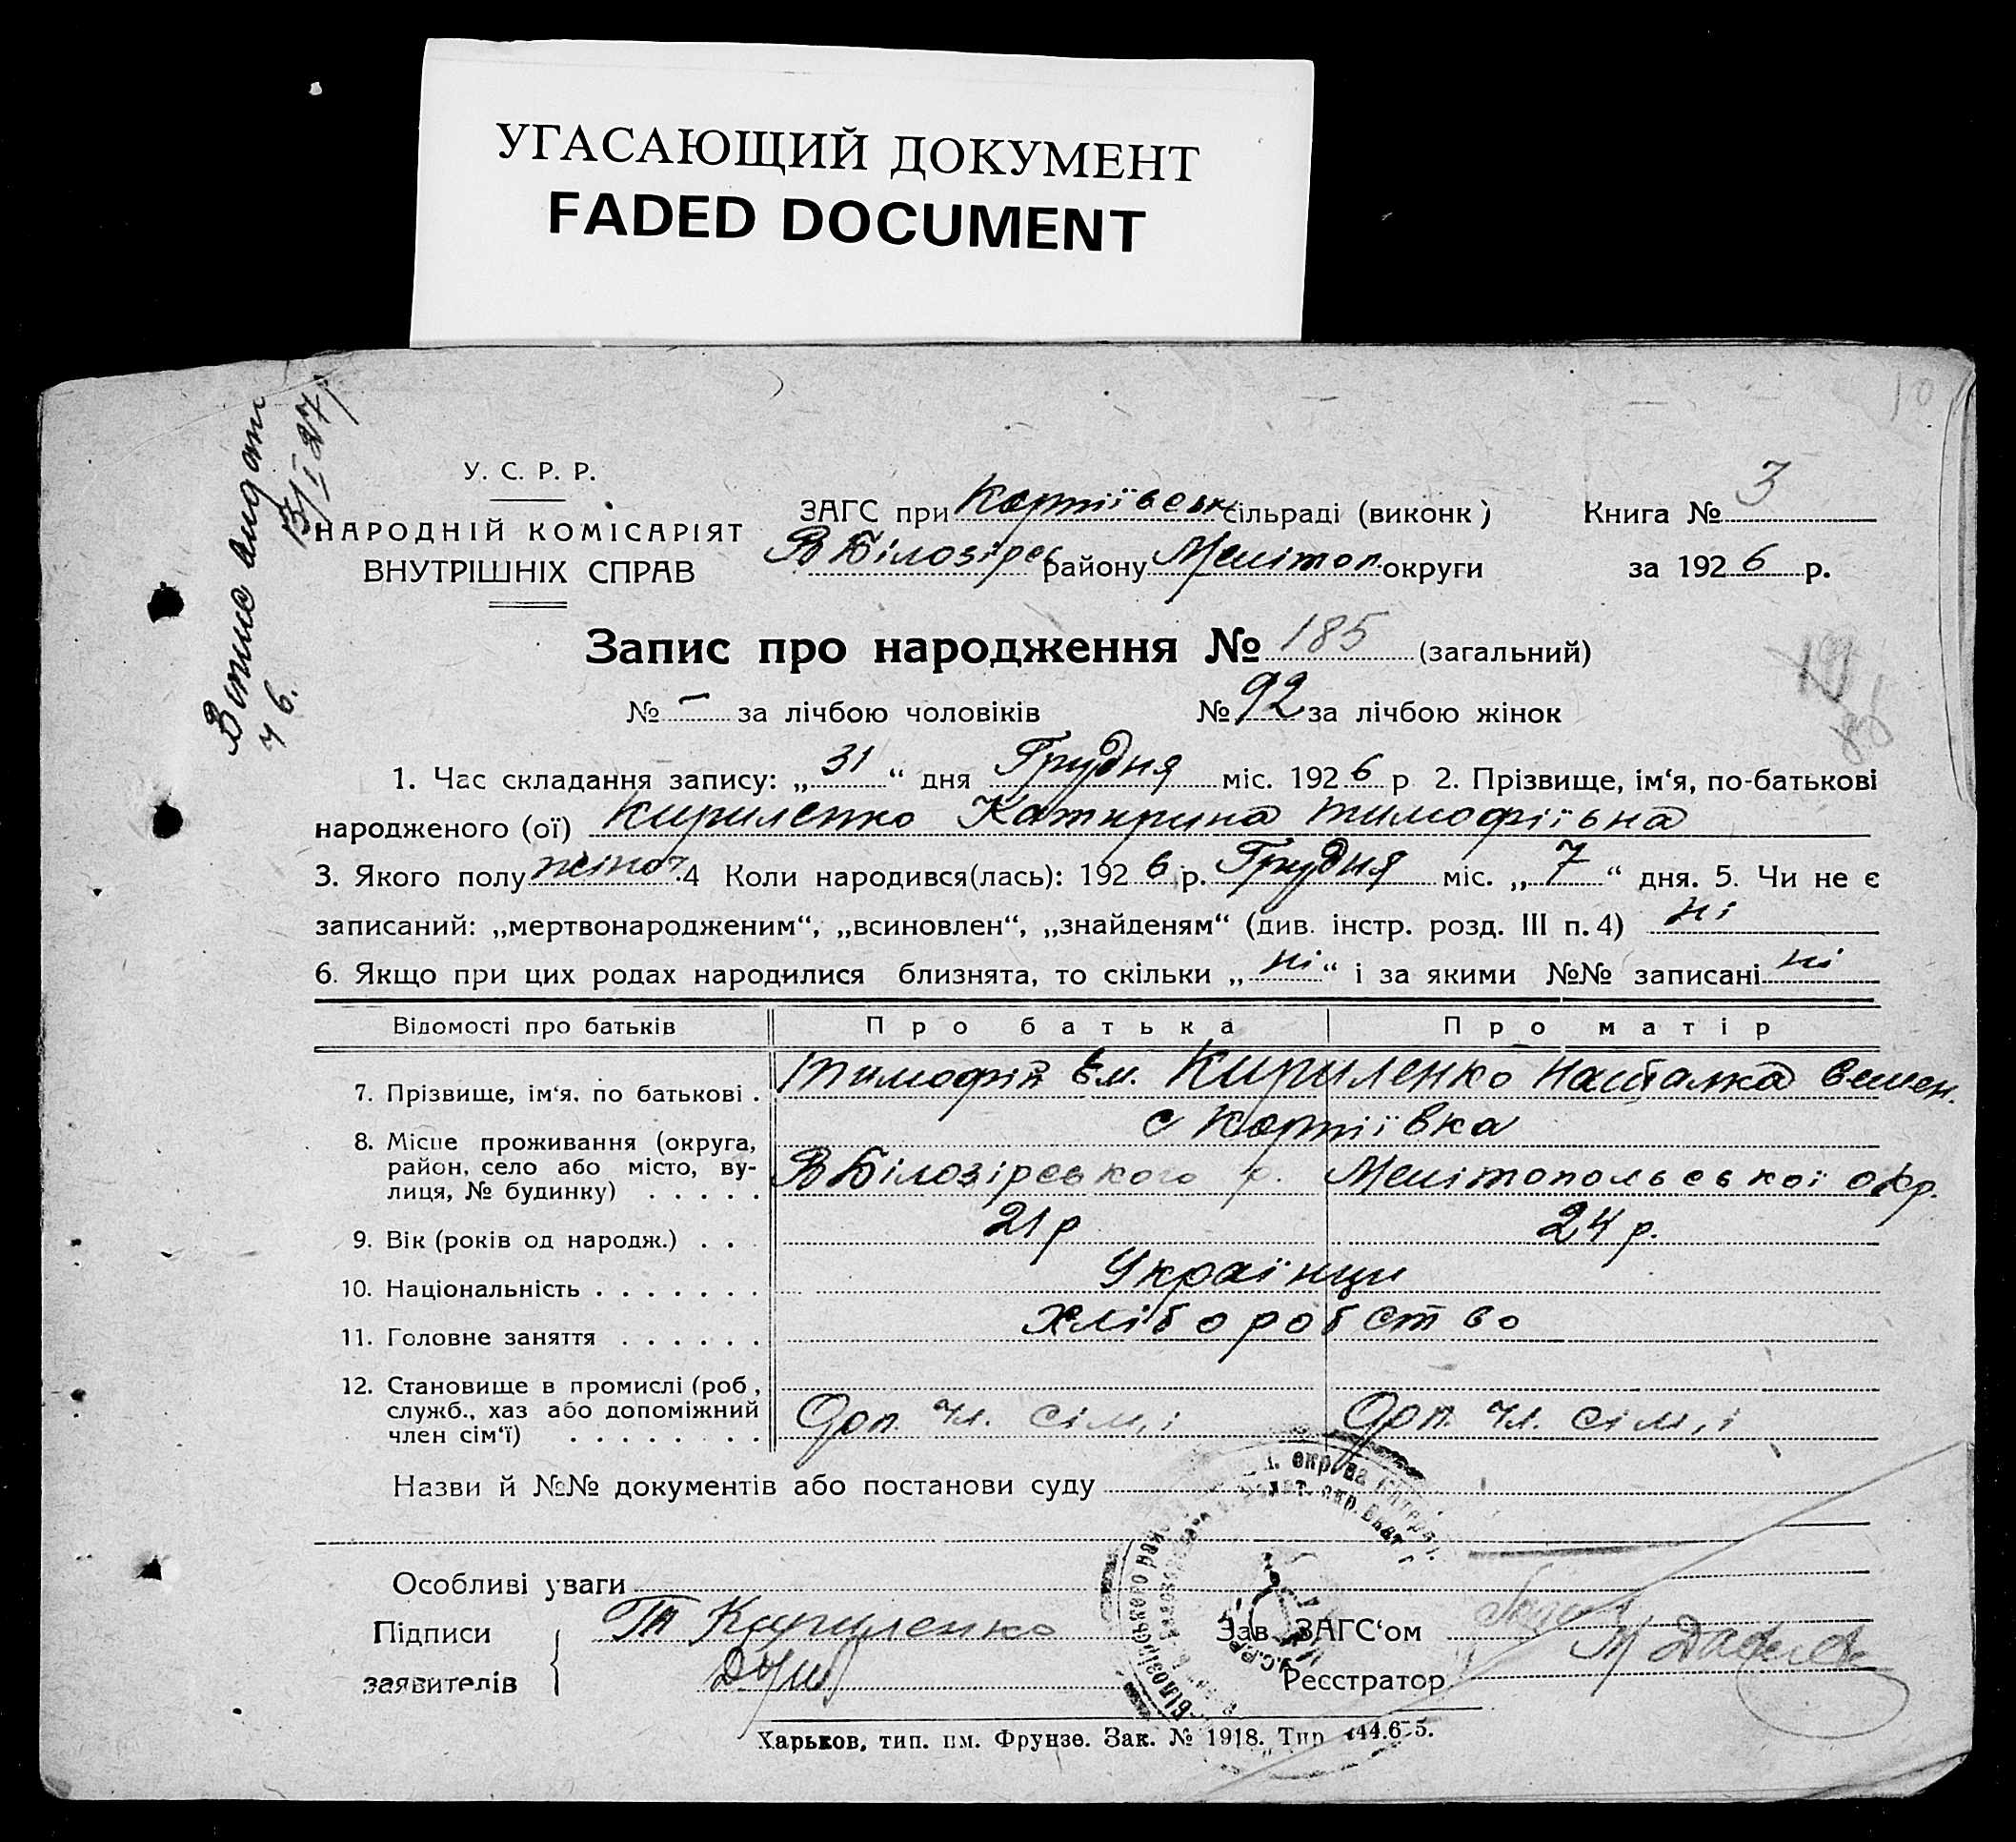 УГАСАЮЩИЙ ДОКУМЕНТ
FADED DOCUMENT
Випис
13/I 27
У. С. Р. Р.
НАРОДНІЙ КОМІСАРІЯТ
ВНУТРІШНІХ СПРАВ
ЗАГС при Картіївськ сільраді (виконк)
В Білозірс району Мелітоп. округи
Книга № 3
за 1926 р.
Запис про народження № 185 (загальний)
№ – за лічбою чоловіків № 92 за лічбою жінок
1. Час складання запису: „31“ дня Грудня міс. 1926 р 2. Прізвище, ім‘я, по-батькові
народженого (ої) Кириленко Катирина Тимофіївна
3. Якого полу жіноч. 4 Коли народився(лась): 1926 р. Грудня міс. „7“ дня. 5. Чи не є
записаний: „мертвонародженим“, „всиновлен“, „знайденям“ (див. інстр. розд. III п. 4) ні
6. Якщо при цих родах народилися близнята, то скільки „ні“ і за якими №№ записані ні
Відомості про батьків Про батька Про матір
7. Прізвище, ім‘я, по батькові . Тимофій Ем. Кириленко Насталка Семен.
8. Місце проживання (округа, с Картіївка
район, село або місто, ву- В Білозірського р. Мелітопольської окр.
лиця, № будинку) . . . . .
9. Вік (років од народж.) . . . 21 р 24 р.
10. Національність . . . . . . . Українци
11. Головне заняття . . . . . . Хліборобство
12. Становище в промислі (роб,
служб., хаз або допоміжний Доп. чл. сім,і Доп. чл. сім,і
член сім‘ї) . . . . . . . .
Назви й №№ документів або постанови суду
Особливі уваги
Підписи Кириленко Зав. ЗАГС‘ом
заявителів Реєстратор
Харьков, тип. им. Фрунзе. Зак. № 1918. Тир